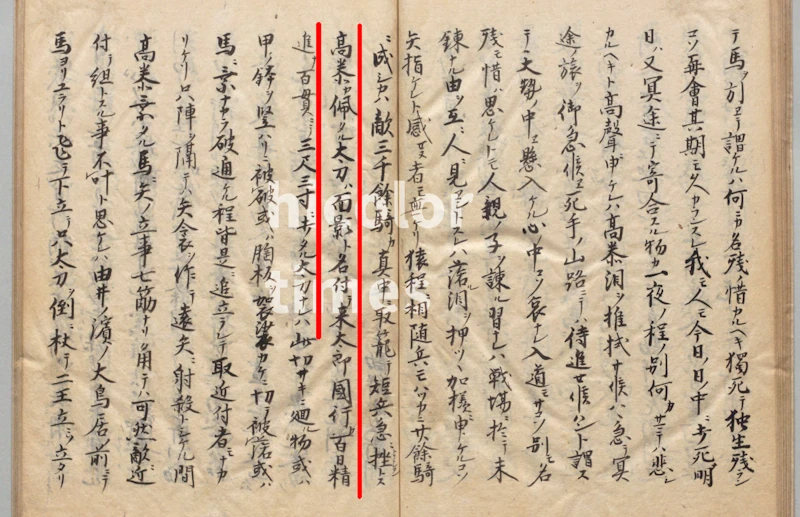 テ馬ヲ引ヱテ謂ケルハ何ニカ名残ノ惜カルヘキ獨死テ独生残ラン
コソ再會其期モ久カランスレ我モ人モ今日ノ日ノ中ニ討死明
日ハ又冥途ニテ寄合スル物カ一夜ノ程ノ別何カサテハ悲シ
カルヘキト高聲申ケレハ高恭泪ヲ推拭サ候ハヽ急テ冥
途ノ旅ヲ御急候ヱ死手ノ山路ニテハ侍進セ候ハント謂ス
テ大勢ノ中ヱ懸入ケル心ノ中コソ哀ナレ入道モ別ノ名
残モ惜ハ思ケレトモ人親ノ子ヲ諫ル習ナレハ戦場ニ於テ未
錬ナル由ヲ互ニ人ニ見ヱントスレハ落泪ヲ押ツヽ加様申ケルコソ
矢指ケレト感セヌ者モ無ケリ猿程ニ相随兵モハツカニ廿餘騎
ニ成シカハ敵三千餘騎カ真中ニ取籠テ短兵急ニ挫トス
高恭カ佩タル太刀ハ面影ト名付テ来太郎國行カ百日精
進ニテ百貫ニテ三尺三寸ニ打タル太刀ナレハ此切サキニ廻ル物或ハ
甲ノ鉢ヲ竪ハリニ被破或ハ胸板ヲ袈裟カケニ切テ被落或ハ
馬ニ乗ナカラ破通ケル程皆是ニ追立ラレテ敢近付者ナカ
リケリ只陣ヲ隔テ矢衾ヲ作テ遠矢ニ射殺トシケル間
高恭乗タル馬ニ矢ノ立事七筋ナリ角テハ可然敵ニ近
付テ組トスル事不叶ト思ケレハ由井ノ濱ノ大鳥居ノ前ニテ
馬ヨリユラリト飛テ下立テ只太刀ヲ倒ニ杖テ二王立ニソ立タリ
nicolor
times